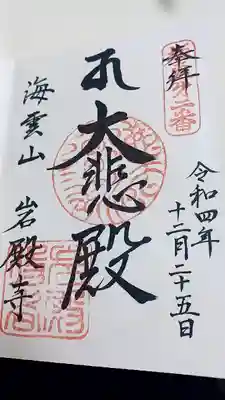 奉拝
第二番
令和四年
十二月二十五日
大悲殿
海雲山 岩殿寺